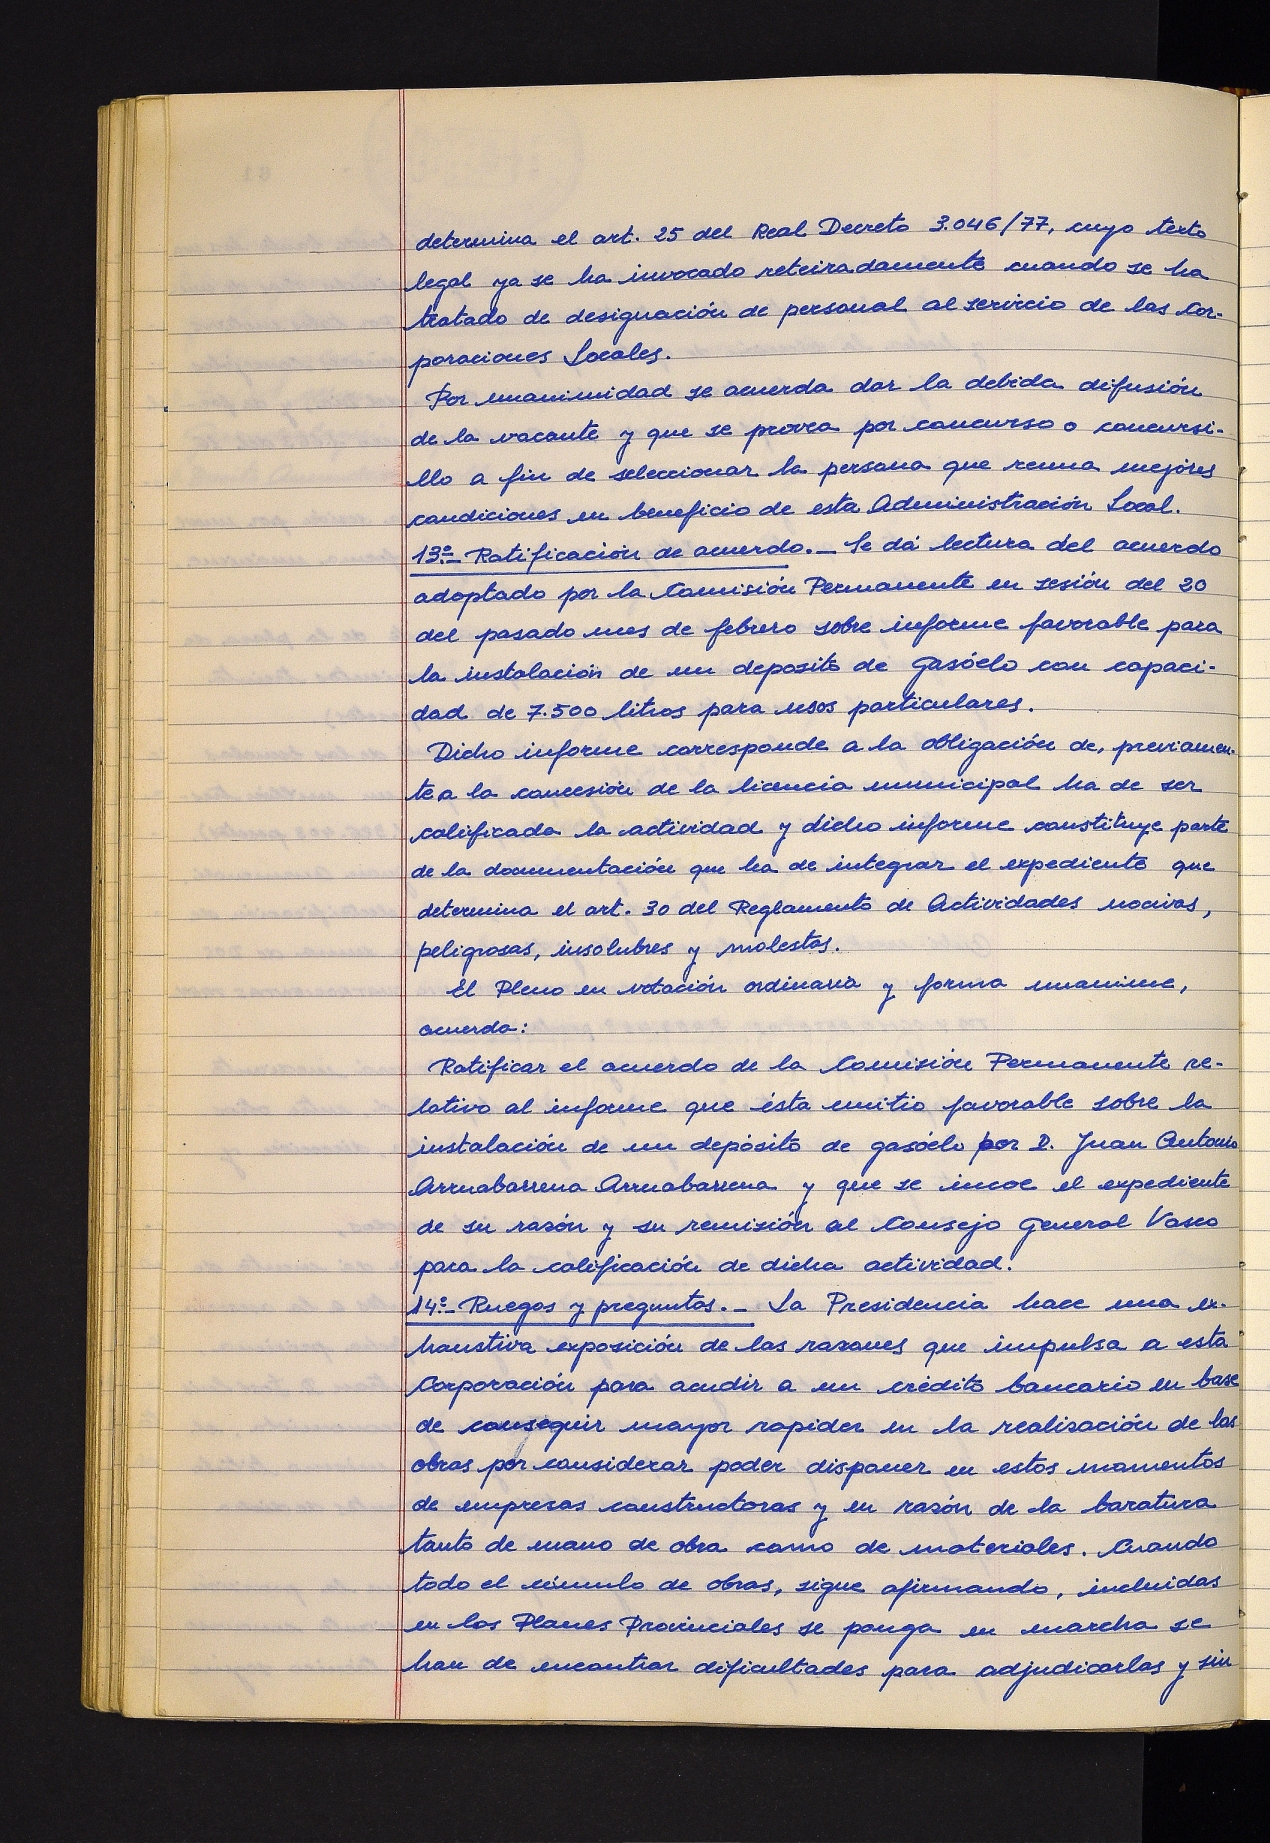 determina el art. 25 del Real Decreto 3.046/77, cuyo texto
legal ya se ha invocado reteiradamente cuando se ha
tratado de designación de personal al servicio de las Cor-
poraciones Locales.
Por unanimidad se acuerda dar la debida difusión
de la vacante y que se provea por concurso o concursi-
llo a fin de seleccionar la persona que reuna mejores
condiciones en beneficio de esta Administración Local.
13º.- Ratificación de acuerdo.- Se dá lectura del acuerdo
adoptado por la Comisión Permanente en sesión del 20
del pasado mes de febrero sobre informe favorable para
la instalación de un deposito de gasóelo con capaci-
dad de 7.500 litros para usos particulares.
Dicho informe corresponde a la obligación de, previamen-
te a la concesión de la licencia municipal ha de ser
calificada la actividad y dicho informe constituye parte
de la documentación que ha de integrar el expediente que
determina el art. 30 del Reglamento de Actividades nocivas,
peligrosas, insolubres y molestas.
El Pleno en votación ordinaria y forma unanime,
acuerda:
Ratificar el acuerdo de la Comisión Permanente re-
lativo al informe que ésta emitio favorable sobre la
instalación de un depósito de gasóelo por D. Juan Antonio
Arruabarrena Arruabarrena y que se incoe el expediente
de su razón y su remisión al Consejo General Vasco
para la calificación de dicha actividad.
14º.- Ruegos y preguntas.- La Presidencia hace una ex-
haustiva exposición de las razones que impulsa a esta
Corporación para acudir a un crédito bancario en base
de conseguir mayor rapidez en la realización de las
obras por considerar poder disponer en estos momentos
de empresas constructoras y en razón de la baratura
tanto de mano de obra como de materiales. Cuando
todo el cúmulo de obras, sigue afirmando, incluidas
en los Planes Provinciales se ponga en marcha se
han de encontrar dificultades para adjudicarlas y sin